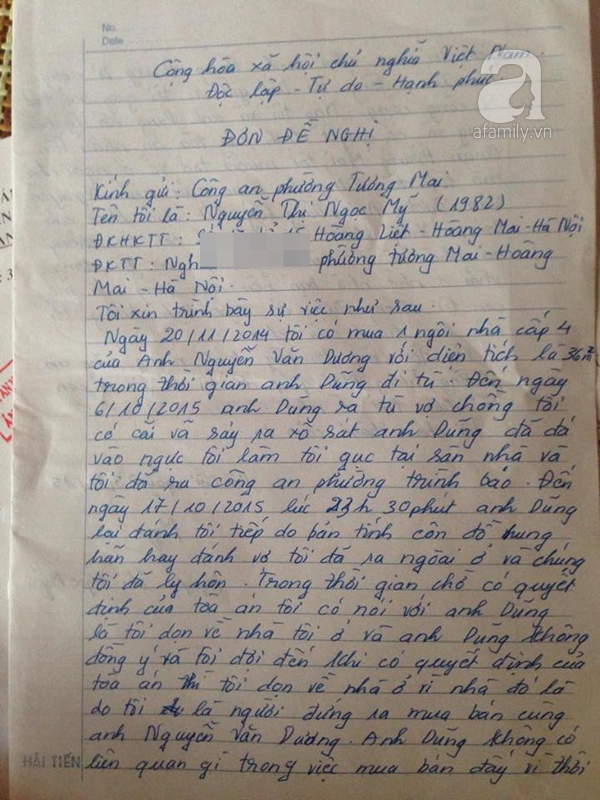 No.
Date
Cộng hòa xã hội chủ nghĩa Việt Nam
Độc lập - Tự do - Hạnh phúc
a
afamily.vn
ĐƠN ĐỀ NGHỊ
Kính gửi: Công an phường Tương Mai
Tên tôi là: Nguyễn Thị Ngọc Mỹ (1982)
ĐKHKTT: Hoàng Liệt - Hoàng Mai - Hà Nội
ĐKTT: Ngh phường tương Mai - Hoàng
Mai - Hà Nội.
Tôi xin trình bày sự việc như sau.
Ngày 20/11/2014 tôi có mua 1 ngôi nhà cấp 4
của Anh Nguyễn Văn Dương với diện tích là 36m²
trong thời gian anh Dũng đi tù. Đến ngày
6/10/2015 anh Dũng ra tù vợ chồng tôi
có cãi vã sảy ra xô sát anh Dũng đã đá
vào ngực tôi làm tôi gục tại sàn nhà và
tôi đã ra công an phường trình báo. Đến
ngày 17/10/2015 lúc 23h 30phút anh Dũng
lại đánh tôi tiếp do bản tính côn đồ hung
hãn hay đánh vợ tôi đã ra ngoài ở và chúng
tôi đã ly hôn. Trong thời gian chờ có quyết
định của tòa án tôi có nói với anh Dũng
là tôi dọn về nhà tôi ở và anh Dũng không
đồng ý và tôi đợi đến khi có quyết định của
tòa án thì tôi dọn về nhà ở vì nhà đó là
do tôi là người đứng ra mua bán cùng
anh Nguyễn Văn Dương. Anh Dũng không có
HẢI TIẾN liên quan gì trong việc mua bán đấy vì thời